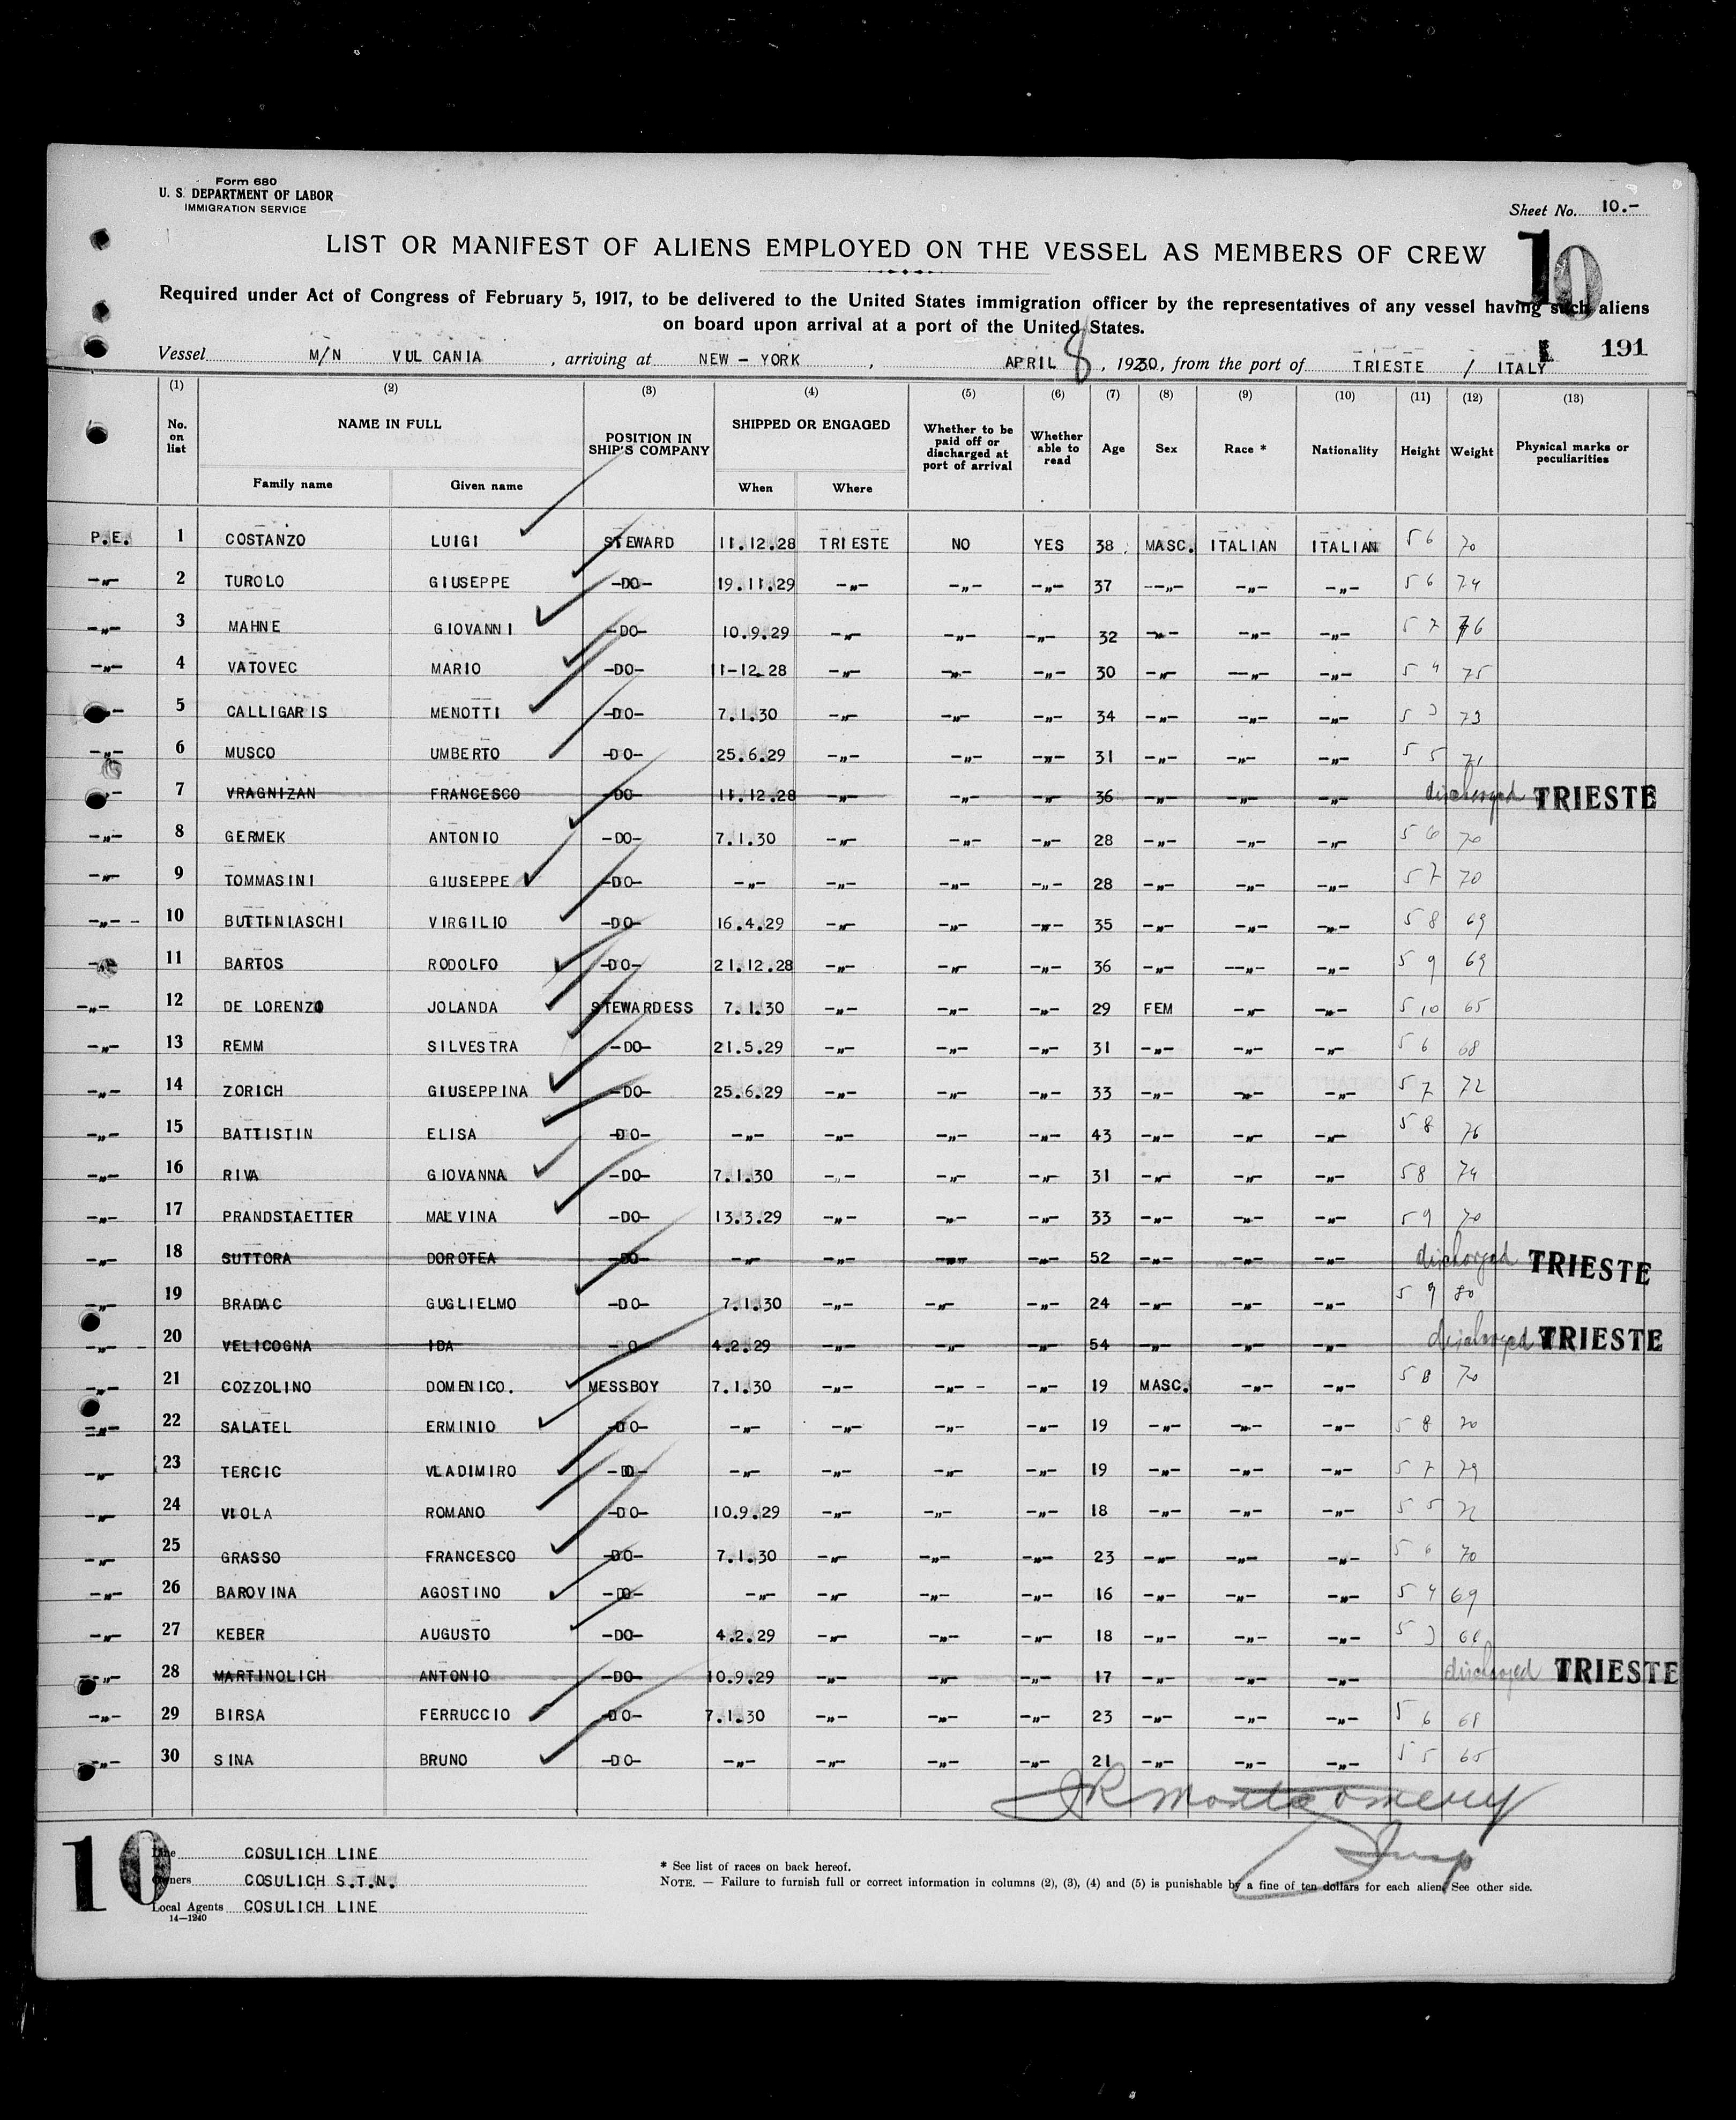 Form 680
U. S. DEPARTMENT OF LABOR
IMMIGRATION SERVICE
Sheet No. 10.-
LIST OR MANIFEST OF ALIENS EMPLOYED ON THE VESSEL AS MEMBERS OF CREW
10
Required under Act of Congress of February 5, 1917, to be delivered to the United States immigration officer by the representatives of any vessel having such aliens
on board upon arrival at a port of the United States.
191
Vessel M/N VULCANIA , arriving at NEW - YORK , APRIL 8 , 1930, from the port of TRIESTE / ITALY
(1) (2) (3) (4) (5) (6) (7) (8) (9) (10) (11) (12) (13)
No. on list NAME IN FULL POSITION IN SHIP'S COMPANY SHIPPED OR ENGAGED Whether to be paid off or discharged at port of arrival Whether able to read Age Sex Race * Nationality Height Weight Physical marks or peculiarities
Family name Given name When Where
P.E. 1 COSTANZO LUIGI STEWARD 11.12.28 TRIESTE NO YES 38 MASC. ITALIAN ITALIAN 5 6 70
-"- 2 TUROLO GIUSEPPE -DO- 19.11.29 -"- -"- -"- 37 -"- -"- -"- 5 6 74
-"- 3 MAHNE GIOVANNI -DO- 10.9.29 -"- -"- -"- 32 -"- -"- -"- 5 7 76
-"- 4 VATOVEC MARIO -DO- 11-12.28 -"- -"- -"- 30 -"- -"- -"- 5 4 75
-"- 5 CALLIGARIS MENOTTI -DO- 7.1.30 -"- -"- -"- 34 -"- -"- -"- 5 3 73
-"- 6 MUSCO UMBERTO -DO- 25.6.29 -"- -"- -"- 31 -"- -"- -"- 5 5 71
-"- 7 VRAGNIZAN FRANCESCO -DO- 11.12.28 -"- -"- -"- 36 -"- -"- -"- discharged TRIESTE
-"- 8 GERMEK ANTONIO -DO- 7.1.30 -"- -"- -"- 28 -"- -"- -"- 5 6 70
-"- 9 TOMMASINI GIUSEPPE -DO- -"- -"- -"- -"- 28 -"- -"- -"- 5 7 70
-"- 10 BUTTINIASCHI VIRGILIO -DO- 16.4.29 -"- -"- -"- 35 -"- -"- -"- 5 8 69
-"- 11 BARTOS RODOLFO -DO- 21.12.28 -"- -"- -"- 36 -"- -"- -"- 5 9 69
-"- 12 DE LORENZO JOLANDA STEWARDESS 7.1.30 -"- -"- -"- 29 FEM -"- -"- 5 10 65
-"- 13 REMM SILVESTRA -DO- 21.5.29 -"- -"- -"- 31 -"- -"- -"- 5 6 68
-"- 14 ZORICH GIUSEPPINA -DO- 25.6.29 -"- -"- -"- 33 -"- -"- -"- 5 7 72
-"- 15 BATTISTIN ELISA -DO- -"- -"- -"- -"- 43 -"- -"- -"- 5 8 76
-"- 16 RIVA GIOVANNA -DO- 7.1.30 -"- -"- -"- 31 -"- -"- -"- 5 8 74
-"- 17 PRANDSTAETTER MALVINA -DO- 13.3.29 -"- -"- -"- 33 -"- -"- -"- 5 9 70
-"- 18 SUTTORA DOROTEA -DO- -"- -"- -"- -"- 52 -"- -"- -"- discharged TRIESTE
-"- 19 BRADAC GUGLIELMO -DO- 7.1.30 -"- -"- -"- 24 -"- -"- -"- 5 9 80
-"- 20 VELICOGNA IDA -DO- 4.2.29 -"- -"- -"- 54 -"- -"- -"- discharged TRIESTE
-"- 21 COZZOLINO DOMENICO. MESSBOY 7.1.30 -"- -"- -"- 19 MASC. -"- -"- 5 8 70
-"- 22 SALATEL ERMINIO -DO- -"- -"- -"- -"- 19 -"- -"- -"- 5 8 70
-"- 23 TERCIC VLADIMIRO -DO- -"- -"- -"- -"- 19 -"- -"- -"- 5 7 79
-"- 24 VIOLA ROMANO -DO- 10.9.29 -"- -"- -"- 18 -"- -"- -"- 5 5
-"- 25 GRASSO FRANCESCO -DO- 7.1.30 -"- -"- -"- 23 -"- -"- -"- 5 6 70
-"- 26 BAROVINA AGOSTINO -DO- -"- -"- -"- -"- 16 -"- -"- -"- 5 4 69
-"- 27 KEBER AUGUSTO -DO- 4.2.29 -"- -"- -"- 18 -"- -"- -"- 5 3 66
-"- 28 MARTINOLICH ANTONIO -DO- 10.9.29 -"- -"- -"- 17 -"- -"- -"- discharged TRIESTE
-"- 29 BIRSA FERRUCCIO -DO- 7.1.30 -"- -"- -"- 23 -"- -"- -"- 5 6 68
-"- 30 SINA BRUNO -DO- -"- -"- -"- -"- 21 -"- -"- -"- 5 5 65
JR Montgomery
Insp
10
Line COSULICH LINE
Owners COSULICH S.T.N.
Local Agents COSULICH LINE
14-1240
* See list of races on back hereof.
NOTE. — Failure to furnish full or correct information in columns (2), (3), (4) and (5) is punishable by a fine of ten dollars for each alien. See other side.